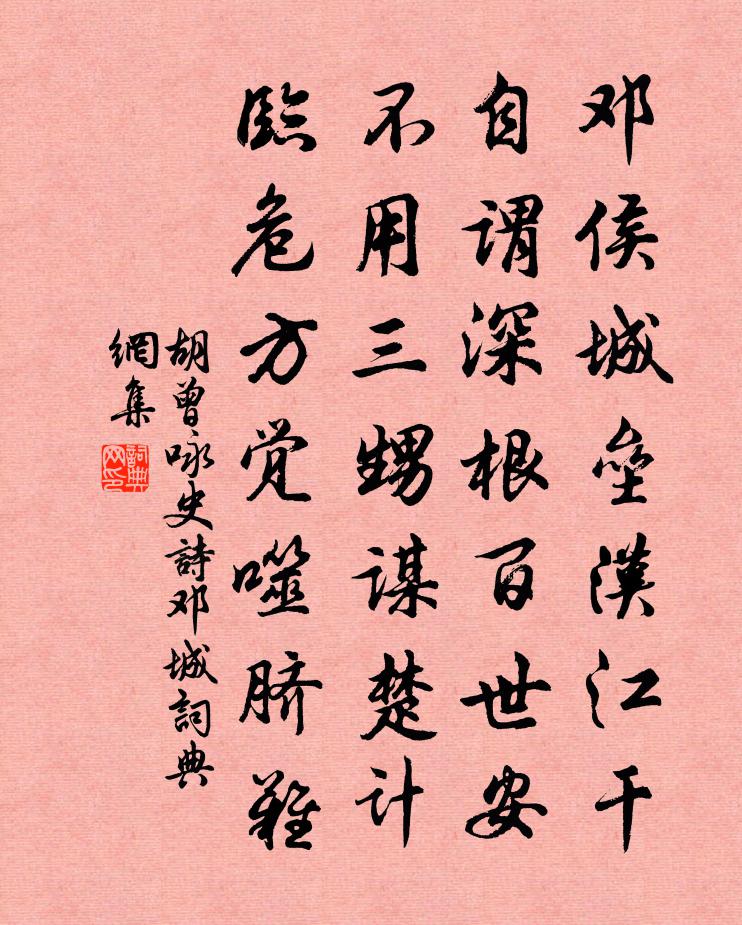 邓侯城垒漢江干
自谓深根百世安
不用三甥谋楚计
臨危方觉噬脐難
胡曾咏史詩邓城詞典
網集
詞典
网印